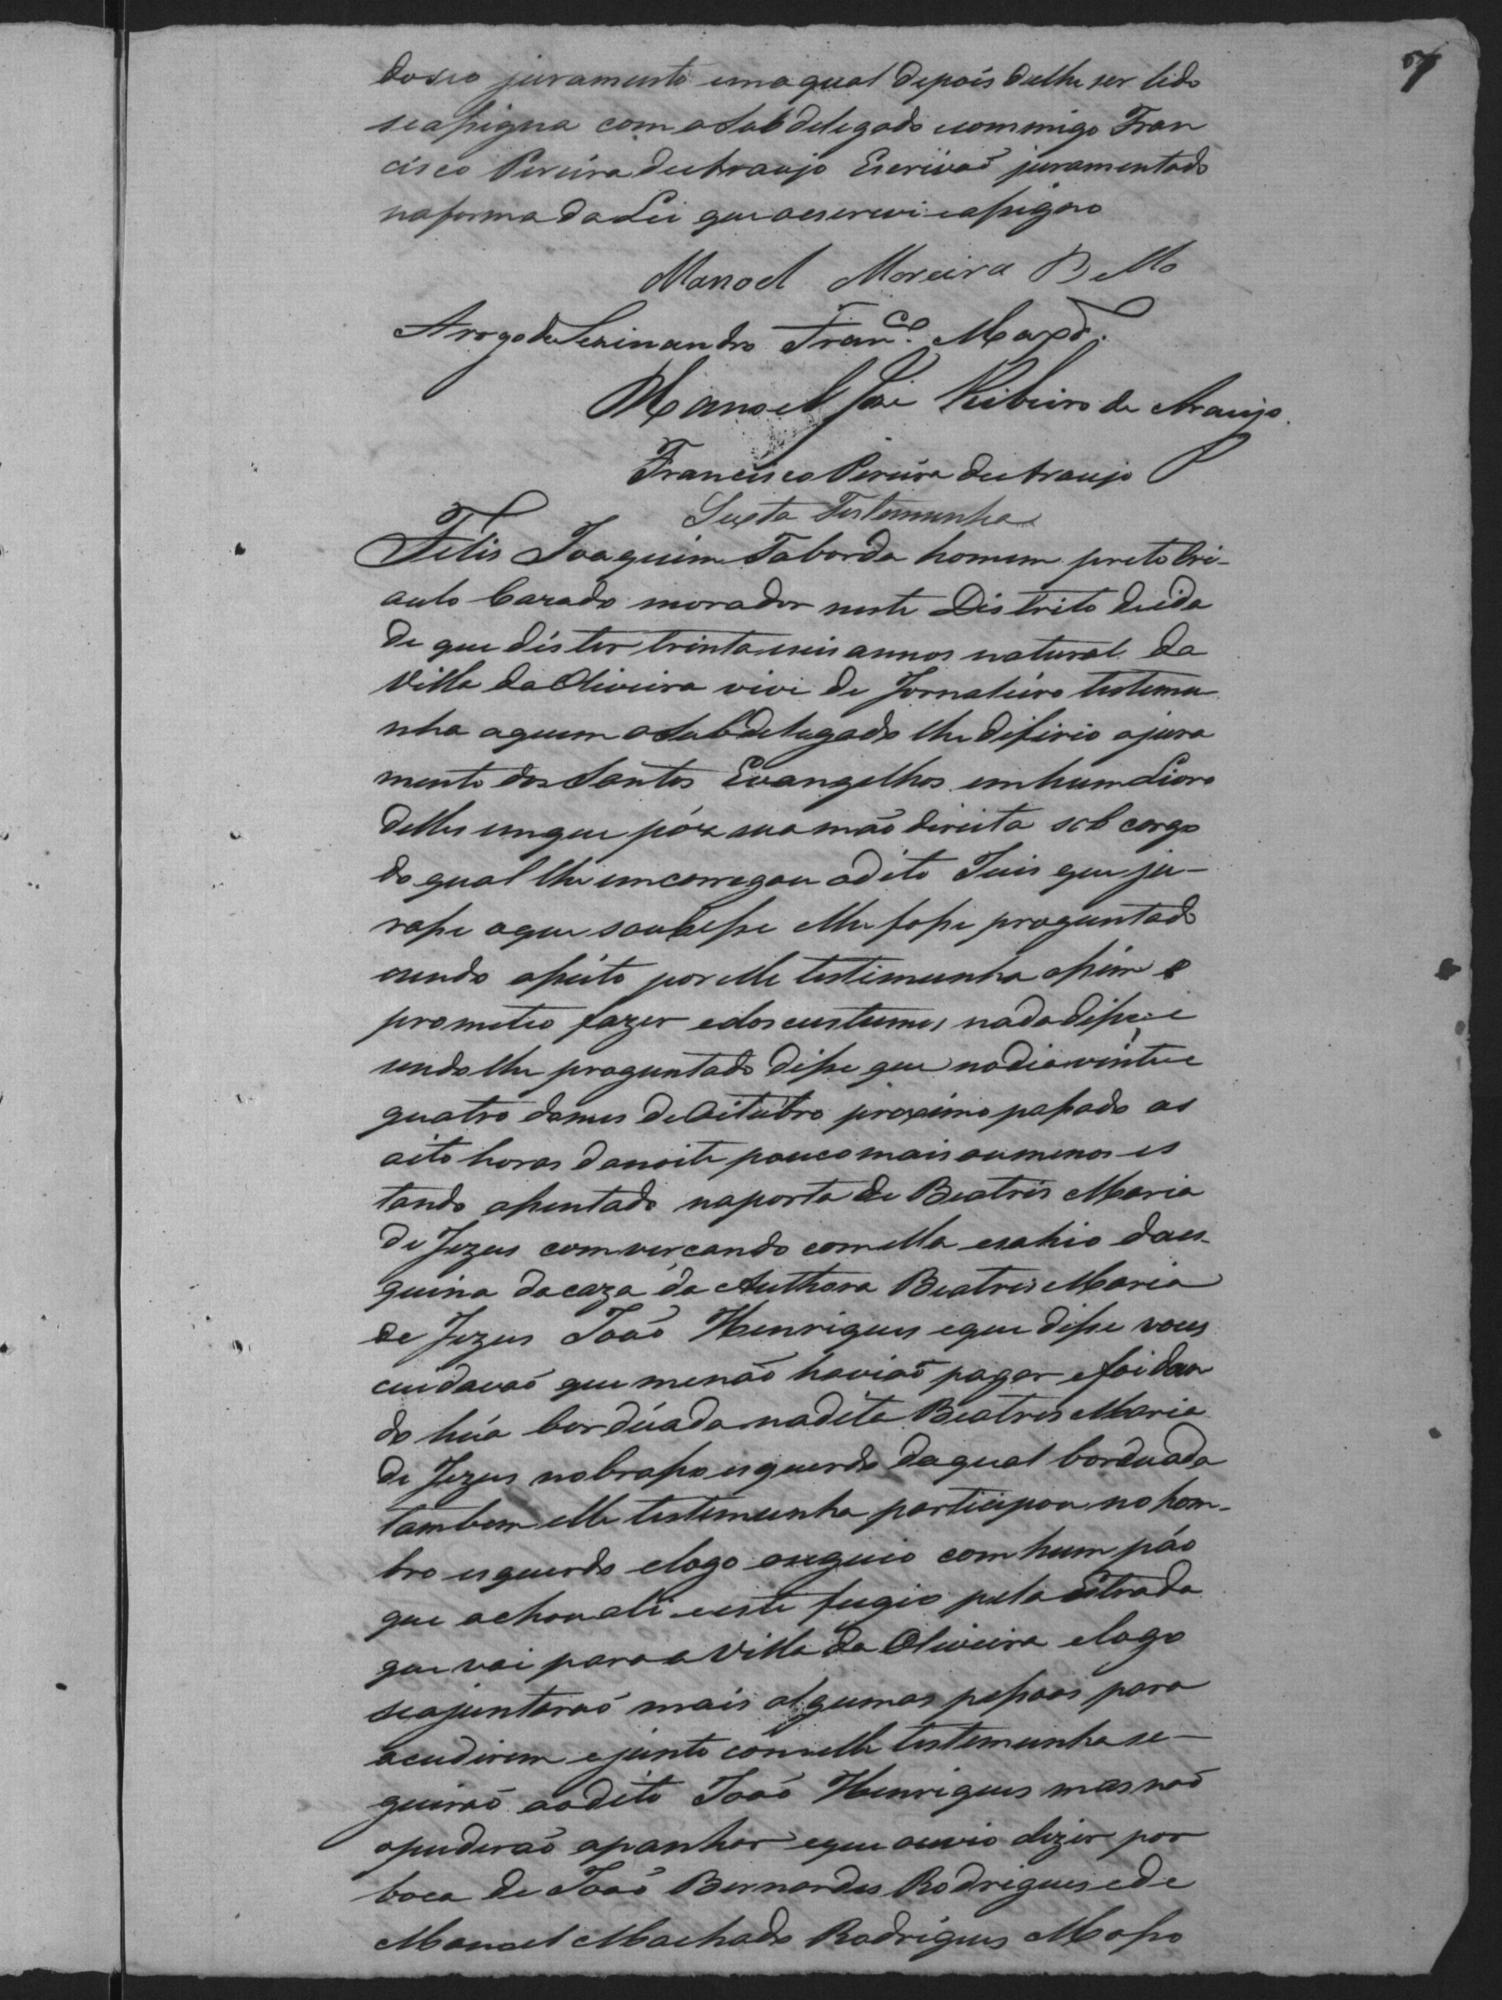 do seo juramento em a qual depois delhe ser lido
se assigna com o Subdelegado e commigo Fran
cisco Pereira de Araujo Escrivaõ juramentado
na forma da Lei que o escrevi e assigno
Manoel Moreira Bello
Arogo de Serinandro Fran.co Maxd.o
Manoel José Ribeiro de Araujo
Francisco Pereira de Araujo
Sexta Testemunha
Felis Joaquim Taborda homem preto Cri-
aulo Cazado morador neste Distrito de ida
de que dis ter trinta e seis annos natural da
Villa da Oliveira vive de Jornaleiro testemu
nha aquem o Subdelegado lhe difirio o jura
mento dos Santos Evangelhos em hum Livro
delles em que pôz sua mão direita sob cargo
do qual lhe emcarregou o dito Juis que ju-
rasse o que soubesse e lhe fosse proguntado
sendo aseito por elle testimunha assim o
prometeo fazer e dos custumes nada disse e
sendo lhe proguntado disse que no dia vinte e
quatro do mes de Oitubro proximo passado as
oito horas da noite pouco mais ou menos es
tando assentado na porta de Beatris Maria
de Jezus comvercando com ella e sahio da es-
quina da caza da Authora Beatris Maria
de Jezus João Henriques e que disse voces
cuidavaõ que me naõ haviaõ pagar e foi dan
do hũa borduada na dita Beatris Maria
de Jezus no braço esquerdo da qual borduada
tambem elle testemunha participou no hom-
bro esquerdo e logo o seguio com hum páo
que achou ali e este fugio pela Estrada
que vai para a Villa da Oliveira e logo
se ajuntaraõ mais algumas pessoas para
acudirem e junto com elle testemunha se-
guiraõ ao dito João Henriques mas naõ
o puderaõ apanhar e que ouvio dizer por
boca de João Bernardes Rodrigues e de
Manoel Machado Rodrigues Mosso